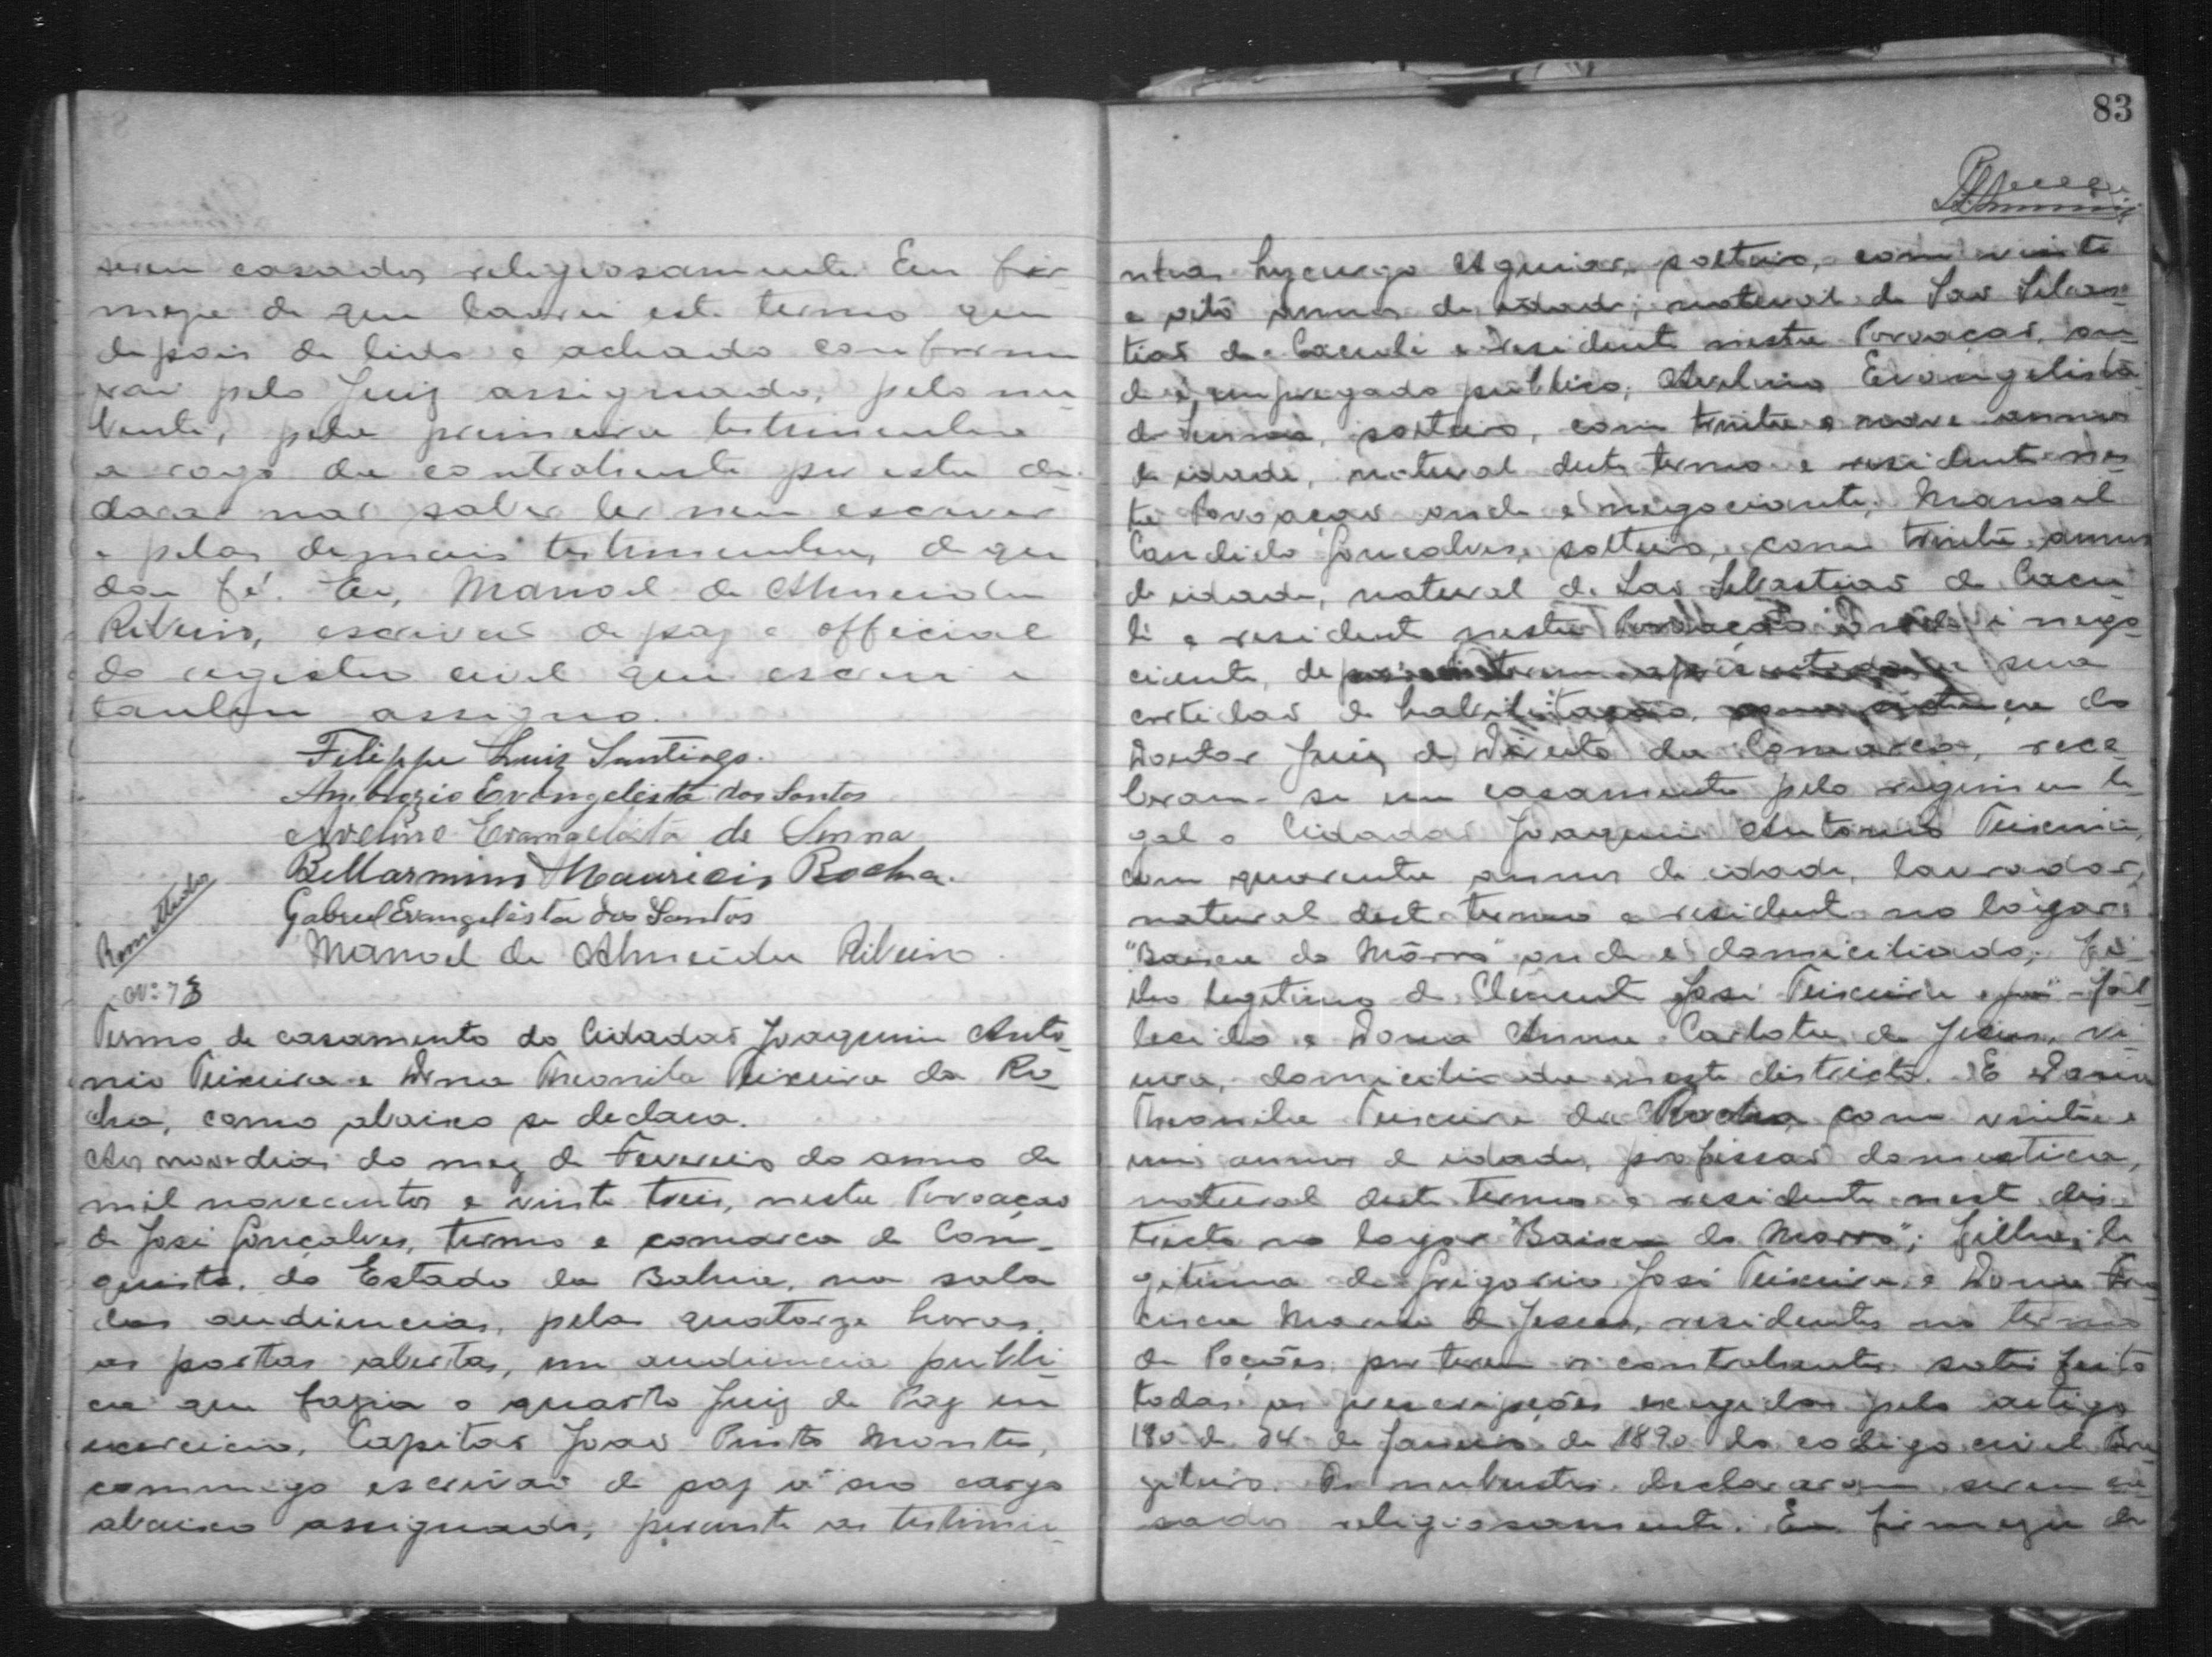 serem casados religiosamente. Em fir-
meza de que lavrei este termo que
depois de lido e achado conforme
vai pelo Juiz assignado, pelo nu-
bente, pela primeira testemunha
a rogo da contrahente por esta de-
clarar não saber ler nem escrever
e pelas demais testemunhas, do que
dou fé. Eu, Manoel de Almeida
Ribeiro, escrivão de paz e official
do registro civil que escrevi e
tambem assigno.
Filippe Luiz Santiago.
Ambrozio Evangelista dos Santos
Avelino Evangelista de Senna
Bellarmino Mauricio Rocha.
Gabriel Evangelista dos Santos
Manoel de Almeida Ribeiro.
Remettido
Nº 73
Termo de casamento do Cidadão Joaquim Anto-
nio Teixeira e Dona Theonila Teixeira da Ro-
cha, como abaixo se declara.
Aos nove dias do mez de Fevereiro do anno de
mil novecentos e vinte treis, nesta Povoação
de José Gonçalves, termo e comarca de Con-
quista, do Estado da Bahia, na sala
das audiencias, pelas quatorze horas,
as portas abertas, em audiencia publi-
ca que fazia o quarto Juiz de Paz em
exercicio, Capitão João Pinto Montes,
commigo escrivão de paz a seu cargo
abaixo assignado, perante as testimu-
83
nhas Lycurgo Aguiar, solteiro, com vinte
e oito annos de idade, natural de São Sebas-
tião de Caculé e residente nesta Povoação, on-
de é empregado publico; Avelino Evangelista
de Senna, solteiro, com trinta e nove annos
de idade, natural deste termo e residente nes-
ta Povoação onde é negociante; Manoel
Candido Gonçalves, solteiro, com trinta annos
de idade, natural de São Sebastião de Cacu-
lé e residente nesta Povoação onde é nego-
ciante, depois de terem apresentado a sua
certidão de habilitação, do
Doutor Juiz de Direito da Comarca, rece-
beram-se em casamento pelo regimem le-
gal o Cidadão Joaquim Antonio Teixeira,
com quarenta annos de idade, lavrador,
natural deste termo e residente no logar
"Baixa do Môrro" onde é domiciliado, fi-
lho legitimo de Clemente José Teixeira já fal-
lecido e Dona Anna Carlota de Jesus, vi-
uva, domiciliada neste districto. E Dona
Theonila Teixeira da Rocha com vinte e
um annos de idade, profissão domestica,
natural deste termo e residente nest dis-
tricto no logar "Baixa do Morro"; filha le-
gitima de Grigorio José Teixeira e Dona Fran-
cisca Maria de Jesus, residentes no termo
de Poções, por terem os contrahentes satisfeito
todas as prescripções exegidas pelo artigo
180 de 24 de Janeiro de 1890 do codigo civil Bra-
zileiro. Os nubentes declararam serem ca-
sados religiosamente. Em firmeza de